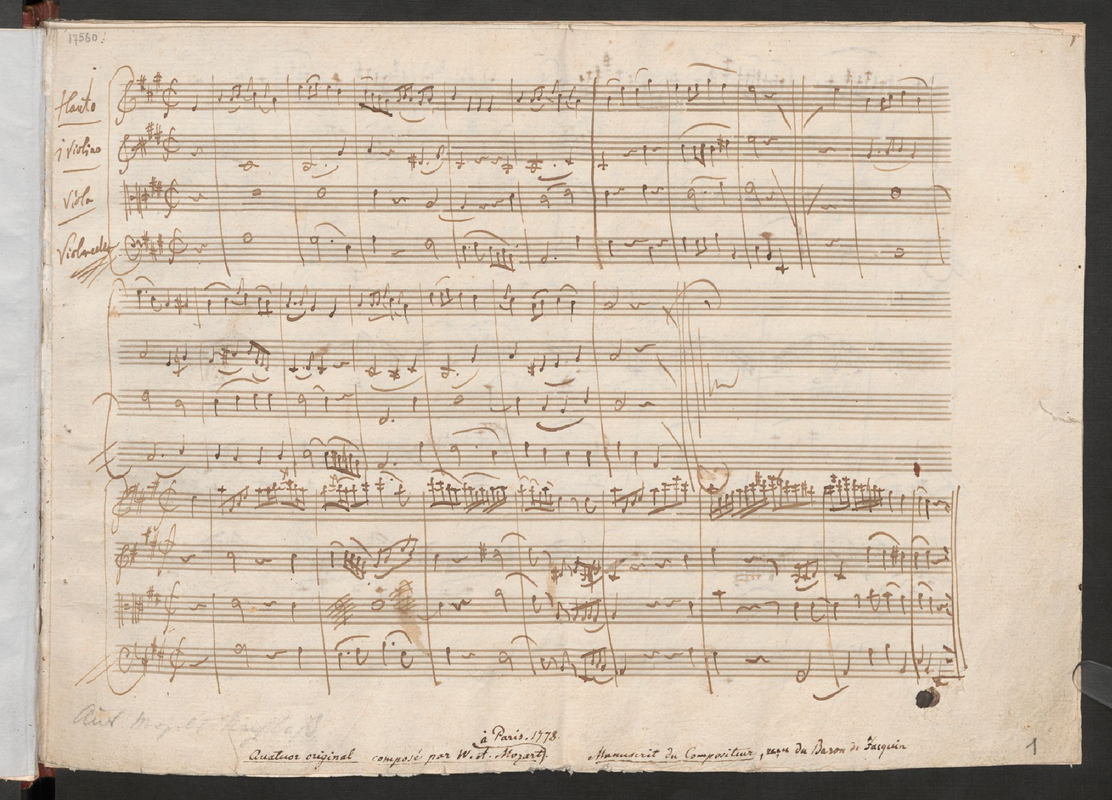 17560.
flauto
1 violino
viola
Violoncello
1
à Paris. 1778.
Quatuor original composé par W. A. Mozart. Manuscrit du Compositeur, reçu du Baron de Jacquin